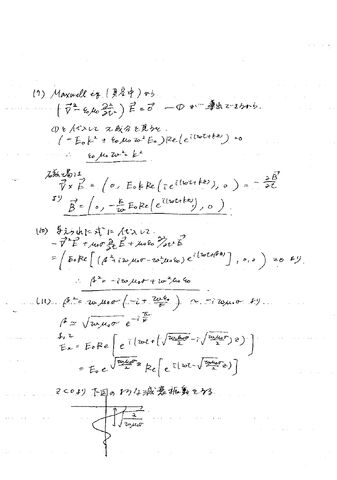 (9) Maxwell eq (真空中) から
(∇⃗² − ε₀μ₀ ∂²/∂t²) E⃗ = 0⃗ —① が導出できるから.
①を代入して x成分を見ると
(−E₀k² + ε₀μ₀w²E₀) Re(e^{i(wt+kz)}) = 0
∴ ε₀μ₀w² = k²
∇⃗×E⃗ = (0, E₀k Re(i e^{i(wt+kz)}), 0) = −∂B⃗/∂t
より B⃗ = (0, −k/w E₀ Re(e^{i(wt+kz)}), 0).
(10) 与えられた式に代入して.
−∇⃗²E⃗ + μ₀σ ∂/∂t E⃗ + μ₀ε₀ ∂²/∂t² E⃗
= (E₀Re[(β²+iwμ₀σ−w²μ₀ε₀)e^{i(wt+βz)}], 0, 0) = 0 より
∴ β² = −iwμ₀σ + w²μ₀ε₀
(11) β² = wμ₀σ(−i + wε₀/σ) ≃ −iwμ₀σ より.
β ≃ √(wμ₀σ) e^{−iπ/4}
E_x = E₀Re[e^{i(wt+(√(wμ₀σ/2)−i√(wμ₀σ/2))z)}]
= E₀e^{√(wμ₀σ/2)z} Re[e^{i(wt+√(wμ₀σ/2)z)}]
z<0より 下図のような減衰振動をする
√(2/wμ₀σ)